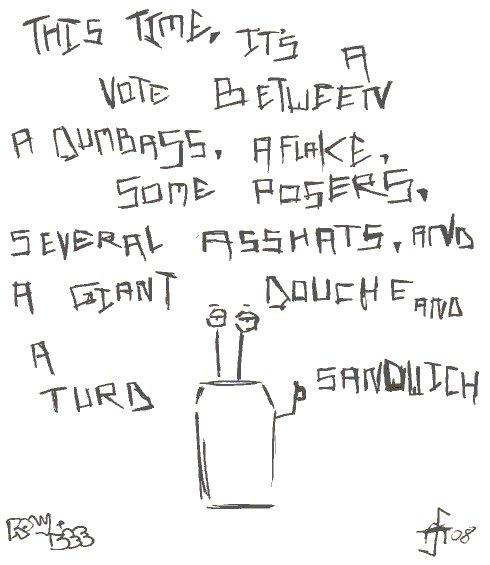 THIS TIME, IT'S A
VOTE BETWEEN
A DUMBASS, A FLAKE,
SOME POSERS,
SEVERAL ASSHATS, AND
A GIANT DOUCHE AND
A
TURD SANDWICH
08